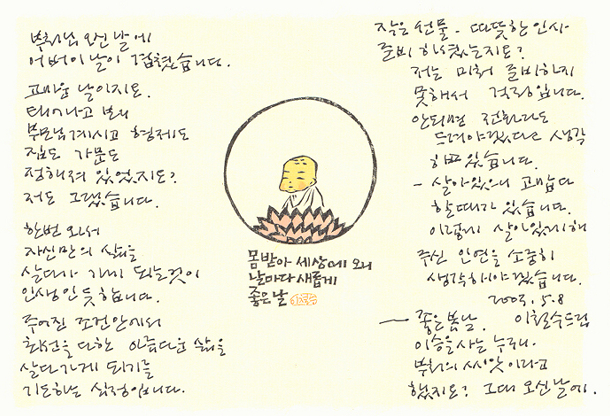 부처님 오신 날에
어버이 날이 겹쳤습니다.
고마운 날이지요.
태어나고 보니
부모님 계시고 형제도
집도 가문도
정해져 있었지요?
저도 그랬습니다.
한번 와서
자신만의 삶을
살다가 가게 되는 것이
인생인 듯 합니다.
주어진 조건 안에서
최선을 다한 아름다운 삶을
살다 가게 되기를
기도하는 심정입니다.
몸 받아 세상에 오니
날마다 새롭게
좋은 날
작은 선물. 따뜻한 인사
준비 하셨는지요?
저는 미처 준비하지
못해서 걱정입니다.
안되면 전화라도
드려야겠다고 생각
하고 있습니다.
- 살아있으니 고맙다
할 때가 있습니다.
이렇게 살아있게 해
주신 인연을 소중히
생각해야겠습니다.
2003. 5. 8
— 좋은 봄날. 이철수 드림
이승을 사는 누구나.
부처의 씨앗이라고
했지요? 그대 오신 날에.